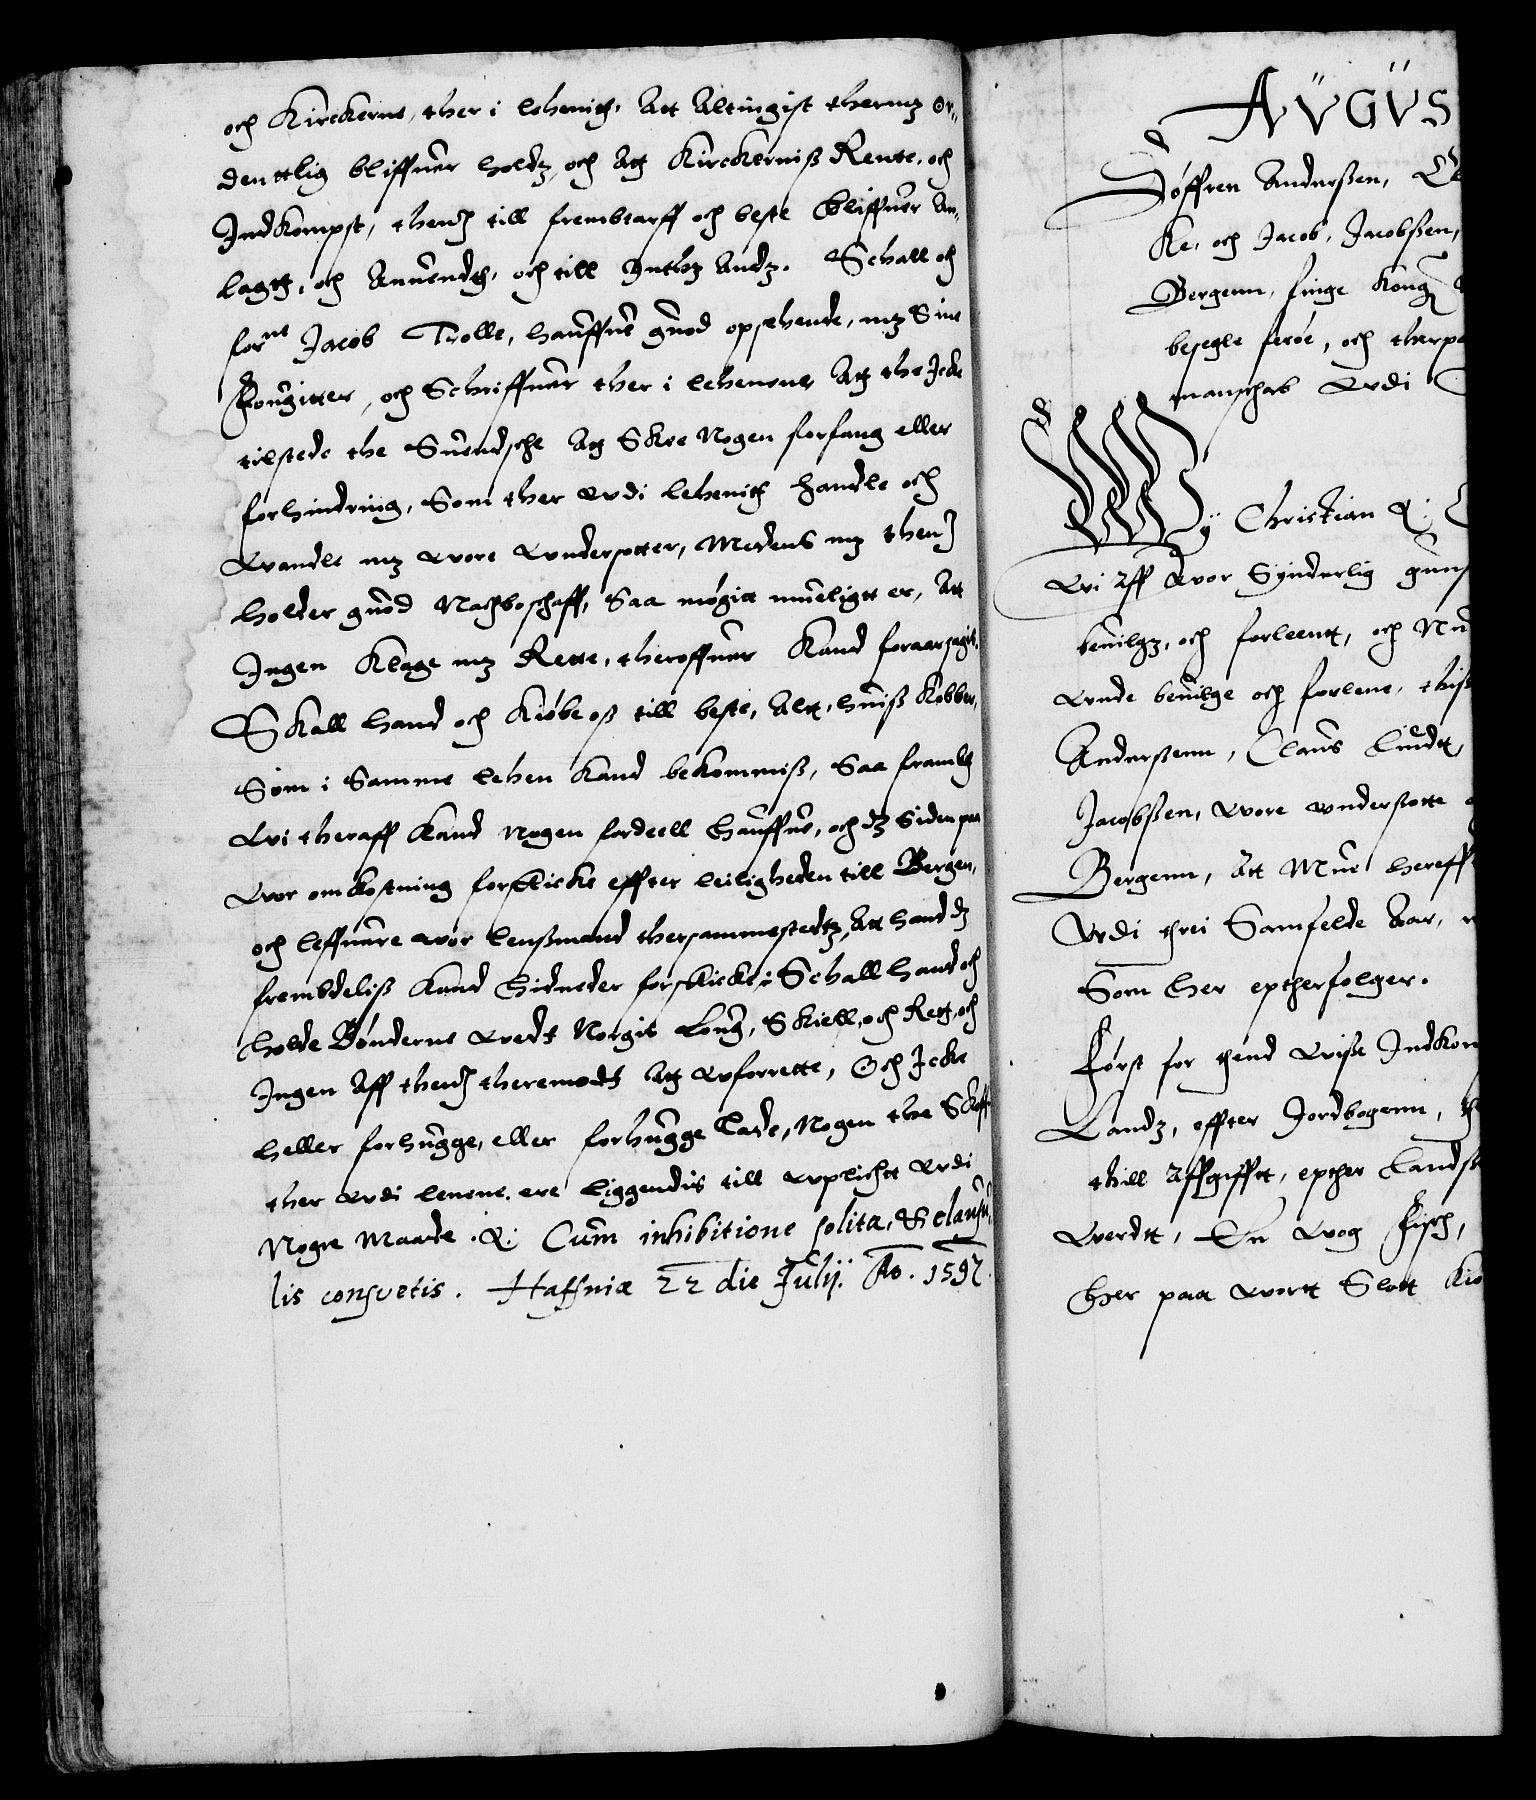 och Kirckerne, ther i lehenith, Att Altingist thermz Or¬
denttlig bliffuer holdz, och Att Kirckerniß Rente, och
Indkompst, thenþ till frembtarff och beste bliffuer An¬
lagtt, och Anuendtt, och till Inthz Andz. Schall och
forne Jacob Trolle, hauffue guod opsehende, mz Sine
Fougitter, och Schriffuer ther i lehenene Att the Icke
tilstede the Suendsche Att Skee Nogen forfang eller
forhindring, Som ther wdi lehenith handle och
Wandle mz wore Wndersotter, Medens mz thenþ
holder guod Naghboschaff, Saa møgitt mueligtt er, Att
Ingen Klage mz Rette, theroffuer Kand foraarsagis.
Skall hand och Kiøbe oß till beste, Altt, huiß Kobber,
Som i Samme lehen Kand bekommiß, Saa framtt
Wi theraff Kand Nogen fordeell hauffue, och dz Siden paa
Wor omkostning forskicke effter leiligheden till Bergen,
och leffuere wor lenßmand thersammestedtz, Att hand dz
frembdeliß Kand hidneder forskicke, Schall hand och
holde Bønderne wedt Norgis Loug, Skiell, och Rett, och
Ingen Aff thenþ theremodt Att wforrette, Och Icke
heller forhugge, eller forhugge lade, Nogen the Skoffe
ther wdi lenene ere liggendis till wplichtt wdi
Nogre Maade. &: Cum inhibitione solita, & clausu¬
lis consuetis. Haffniæ 22 die Julij. Ao. 1597.
AVGVS
Søffren Anderßen, Cl
Ke, och Jacob, Jacobßen,
Bergenn, finge Kong
besegle feröe, och therpa
manschab wdi
Wy Christian &:
Wi Aff Wor Synderlig guns
beuilgz, och forleentt, och Nu
Wnde beuilge och forlene, thiß
Anderßenn, Claus lüdtt,
Jacobßen, Wore Wndersotte
Bergenn, Att Mue hereffte
Wdi threi Samfelde Aar,
Som her eptherfolger.
Først for thend Wiße Indkom
Landz, effter Jordbogenn, th
thill Affgifftt, epther Landß
Werdtt, En Wog Fisch,
her paa Wortt Slott Kiø